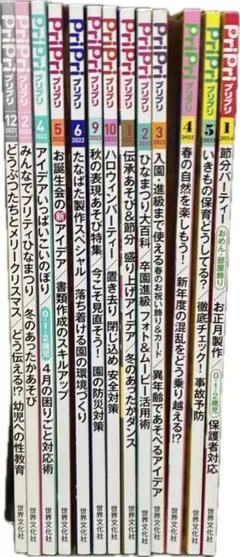 PriPri プリプリ 12 2021 どうぶつたちとメリークリスマス どう伝える!? 幼児への性教育 世界文化社
PriPri プリプリ 2 2022 みんなでプリティひなまつり 冬のあったかあそび 世界文化社
PriPri プリプリ 4 2022 アイデアいっぱいこいのぼり 0・1・2歳児 4月の困りごと対応術 世界文化社
PriPri プリプリ 5 2022 お誕生会の新アイデア/書類作成のスキルアップ 世界文化社
PriPri プリプリ 6 2022 たなばた製作スペシャル 落ち着ける園の環境づくり 世界文化社
PriPri プリプリ 9 2022 秋の表現あそび特集 今こそ見直そう!園の防災対策 世界文化社
PriPri プリプリ 10 2022 ハロウィンパーティー 置き去り・閉じ込め 安全対策 世界文化社
PriPri プリプリ 1 2023 伝承あそび&節分 盛り上げアイデア 冬のあったかダンス 世界文化社
PriPri プリプリ 2 2023 ひなまつり大百科 卒園進級 フォト&ムービー活用術 世界文化社
PriPri プリプリ 3 2023 入園・進級まで使える春のお祝い飾り&カード 異年齢であそべるアイデア 世界文化社
PriPri プリプリ 4 2023 春の自然を楽しもう! 新年度の混乱をどう乗り越える!? 世界文化社
PriPri プリプリ 5 2023 いきもの保育どうしてる? 徹底チェック!事故予防 世界文化社
PriPri プリプリ 1 節分パーティー おめん&部屋飾り お正月製作 0・1・2歳児 保護者対応 世界文化社